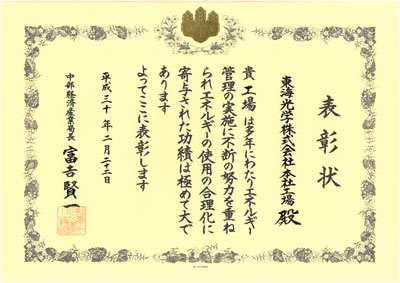 表彰状
東海光学株式会社本社工場 殿
貴 工場 は多年にわたりエネルギー
管理の実施に不断の努力を重ね
られエネルギーの使用の合理化に
寄与された功績は極めて大で
あります
よってここに表彰します
平成三十年二月二十二日
中部経済産業局長 富吉賢一